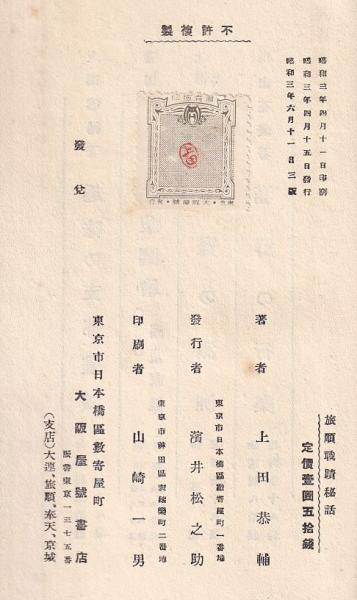 不許複製
昭和三年四月十一日印刷
昭和三年四月十五日發行
昭和三年六月十一日三版
旅順戰蹟秘話
定價壹圓五拾錢
著者 上田恭輔
東京市日本橋區數寄屋町一番地
發行者 濱井松之助
東京市神田區表猿樂町二番地
印刷者 山崎一男
發兌
東京市日本橋區數寄屋町
大阪屋號書店
振替東京一三七五番
(支店)大連、旅順、奉天、京城